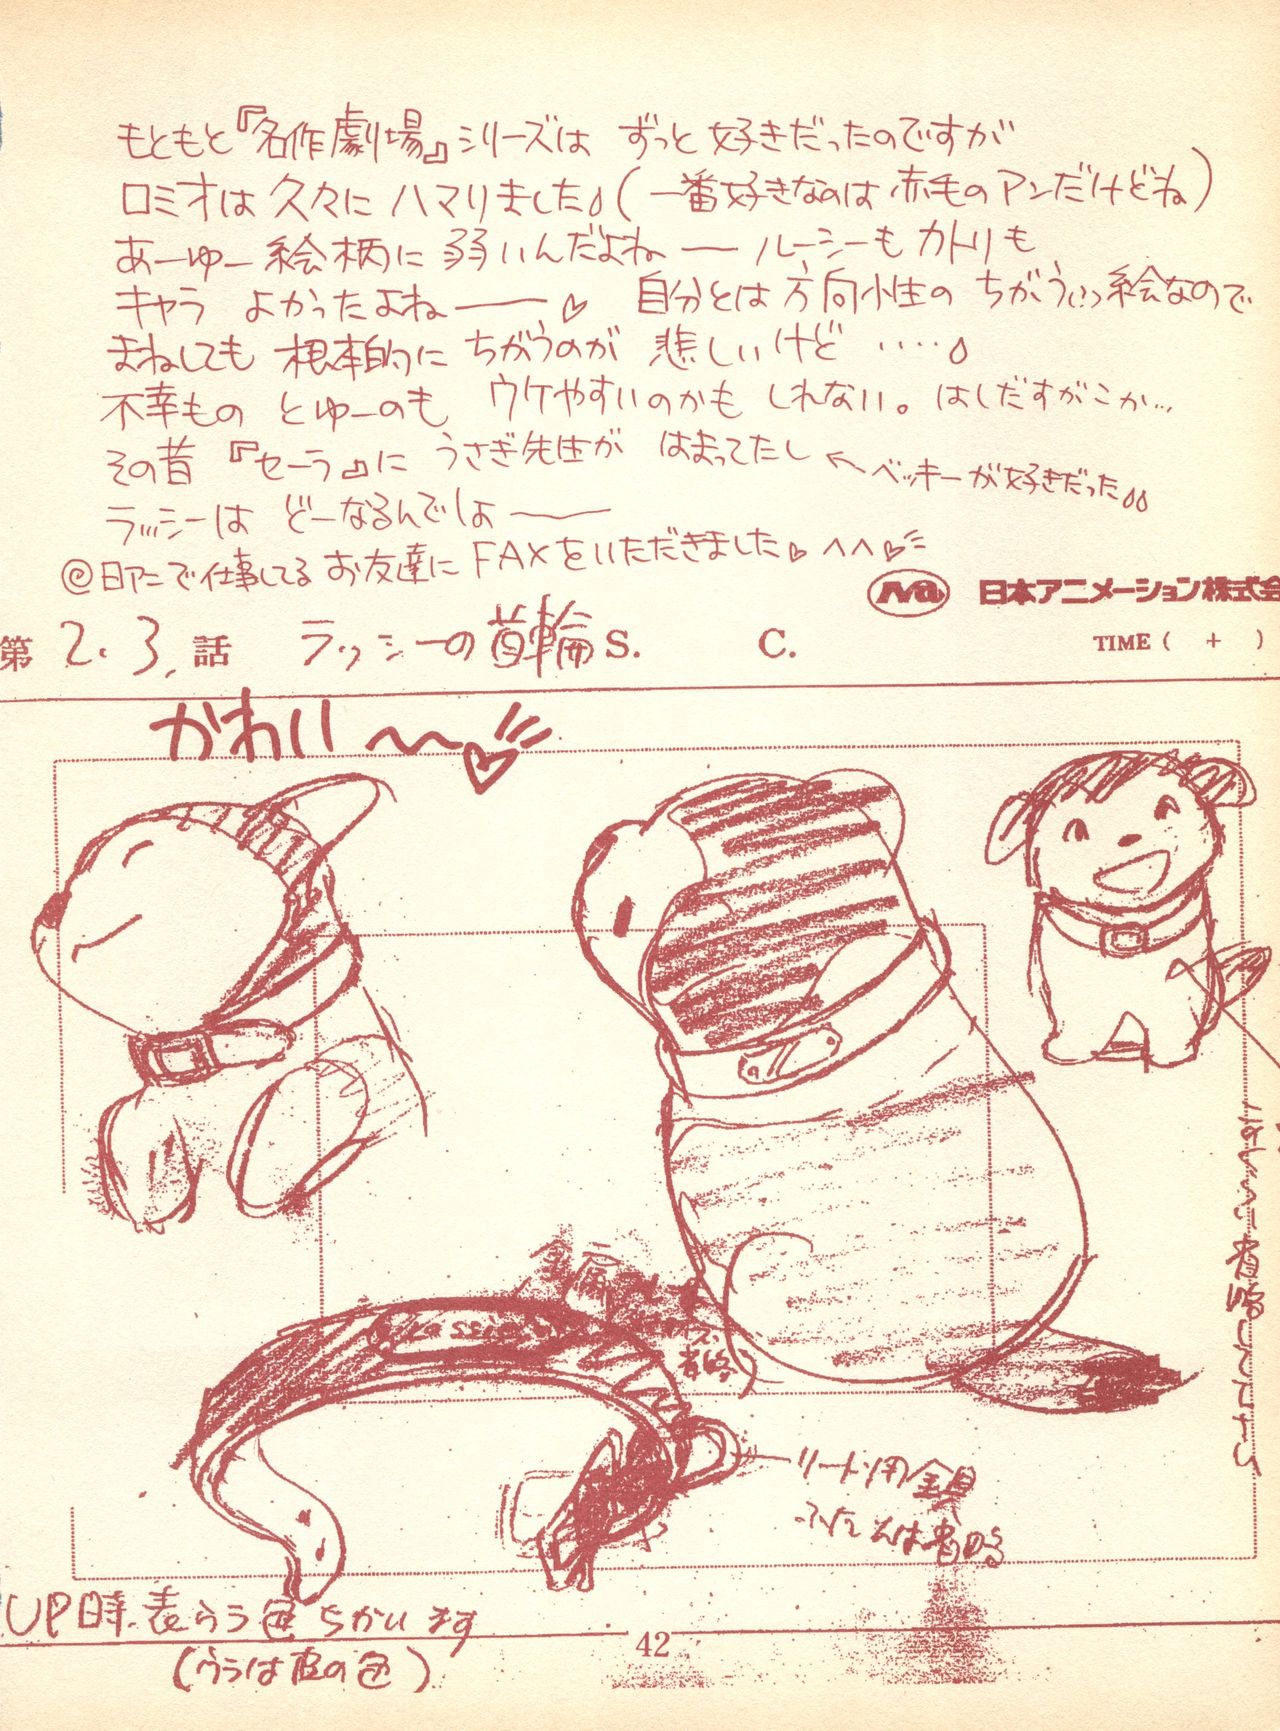 もともと『名作劇場』シリーズは ずっと好きだったのですが
ロミオは久々にハマりました(一番好きなのは赤毛のアンだけどね)
あーゆー絵柄に弱いんだよねー ルーシーもカトリも
キャラ よかったよねー♡ 自分とは方向性の ちがうっ絵なので
まねしても 根本的に ちがうのが 悲しいけど ‥‥
不幸もの とゆーのも ウケやすいのかも しれない。はしだすがこか…
その昔『セーラ』に うさぎ先生が はまってたし ←ベッキーが好きだった
ラッシーは どーなるんでしょー
@日アニで仕事してる お友達に FAXをいただきました♡ ^^♡
Na 日本アニメーション株式会
第 2.3. 話 ラッシーの首輪 S. C. TIME( + )
かわい〜〜♡
金属
Lassie
省略
リード用金具
ふだんは省略
省略して下さい
UP時.表うら色ちがいます
(ウラは皮の色)
42